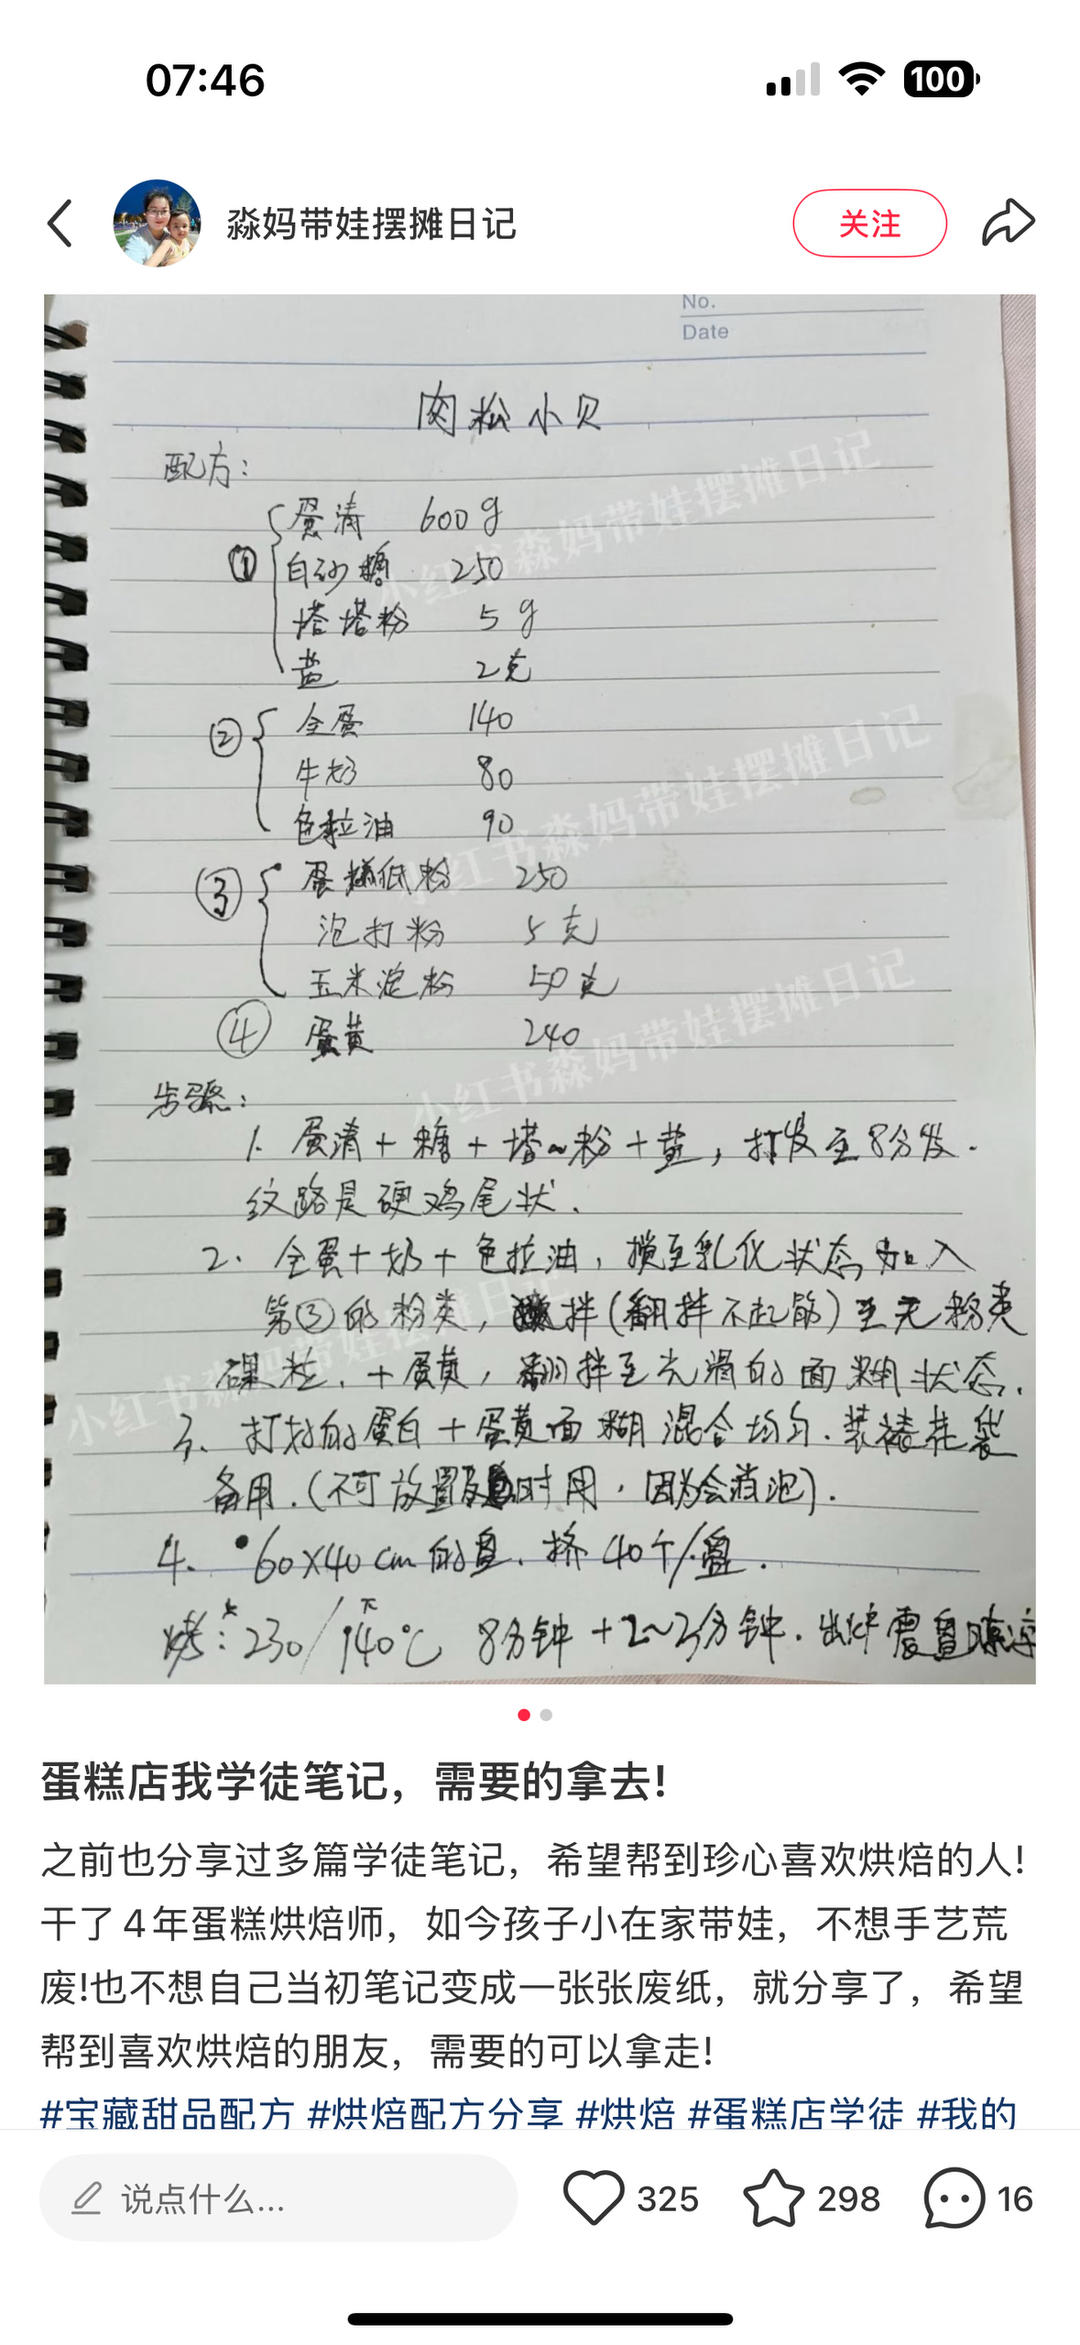 07:46
100
淼妈带娃摆摊日记
关注
No.
Date
肉松小贝
配方:
① 蛋清 600g
白砂糖 250
塔塔粉 5g
盐 2克
② 全蛋 140
牛奶 80
色拉油 90
③ 蛋糕低粉 250
泡打粉 5克
玉米淀粉 50克
④ 蛋黄 240
步骤:
1. 蛋清+糖+塔~粉+盐, 打发至8分发.
纹路是硬鸡尾状.
2. 全蛋+奶+色拉油, 搅至乳化状态, 加入
第③的粉类, 拌(翻拌不起筋)至无粉类
颗粒. +蛋黄, 翻拌至光滑的面糊状态.
3. 打好的蛋白+蛋黄面糊混合均匀. 装裱花袋
备用. (不可放置时用, 因为会消泡).
4. 60×40cm的盘. 挤40个/盘.
烤: 上230/下140℃ 8分钟+2~3分钟. 出炉震盘晾凉
小红书淼妈带娃摆摊日记
小红书淼妈带娃摆摊日记
小红书淼妈带娃摆摊日记
小红书淼妈带娃摆摊日记
蛋糕店我学徒笔记，需要的拿去!
之前也分享过多篇学徒笔记，希望帮到珍心喜欢烘焙的人!
干了4年蛋糕烘焙师，如今孩子小在家带娃，不想手艺荒
废!也不想自己当初笔记变成一张张废纸，就分享了，希望
帮到喜欢烘焙的朋友，需要的可以拿走!
#宝藏甜品配方 #烘焙配方分享 #烘焙 #蛋糕店学徒 #我的
说点什么...
325
298
16